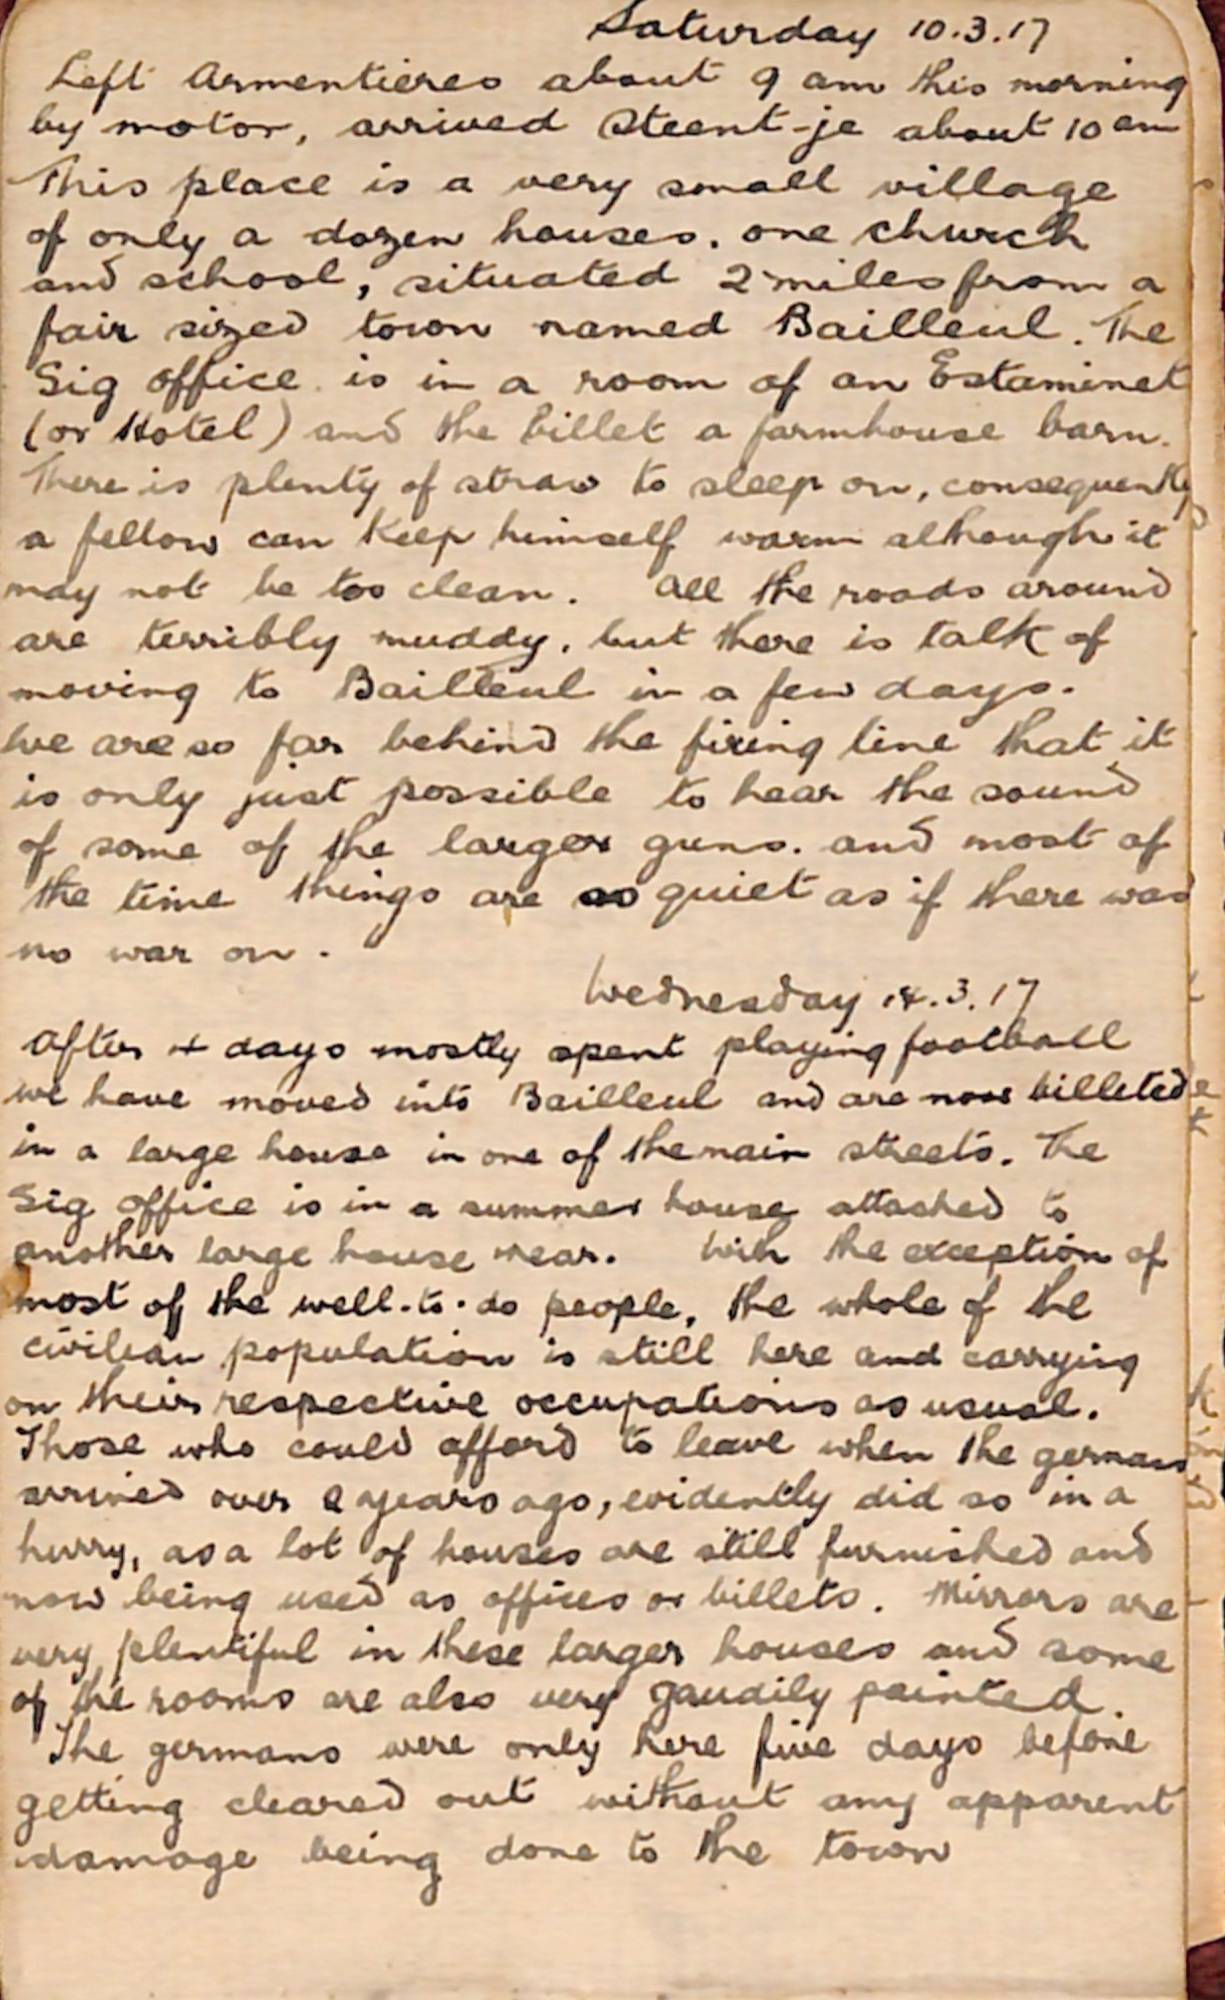 Saturday 10.3.17
Left Armentieres about 9 am this morning
by motor, arrived Steent-je about 10 am
This place is a very small village
of only a dozen houses, one church
and school, situated 2 miles from a
fair sized town named Bailleul. The
Sig office is in a room of an Estaminet
(or Hotel) and the billet a farmhouse barn.
There is plenty of straw to sleep on, consequently
a fellow can keep himself warm although it
may not be too clean. All the roads around
are terribly muddy, but there is talk of
moving to Bailleul in a few days.
We are so far behind the firing line that it
is only just possible to hear the sound
of some of the larger guns. and most of
the time things are as quiet as if there was
no war on.
Wednesday 14.3.17
After 4 days mostly spent playing football
we have moved into Bailleul and are now billeted
in a large house in one of the main streets. The
Sig office is in a summer house attached to
another large house near. With the exception of
most of the well-to-do people, the whole of the
civilian population is still here and carrying
on their respective occupations as usual.
Those who could afford to leave when the germans
arrived over 2 years ago, evidently did so in a
hurry, as a lot of houses are still furnished and
now being used as offices or billets. Mirrors are
very plentiful in these larger houses and some
of the rooms are also very gaudily painted.
The germans were only here five days before
getting cleared out without any apparent
damage being done to the town